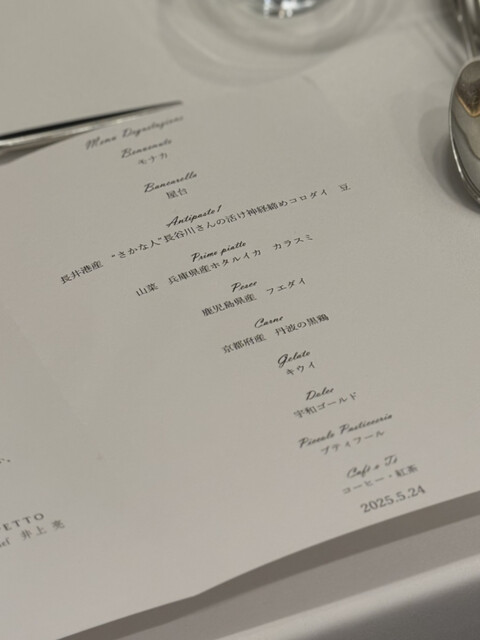 Menu Degustazione
Benvenuto
モナカ
Bancarella
屋台
Antipasto!
長井港産 “さかな人”長谷川さんの活け神経締めコロダイ 豆
Primo piatto
山菜 兵庫県産ホタルイカ カラスミ
Pesce
鹿児島県産 フエダイ
Carne
京都府産 丹波の黒鶏
Gelato
キウイ
Dolce
宇和ゴールド
Piccola Pasticceria
プティフール
Café o Tè
コーヒー・紅茶
2025.5.24
ETTO
井上 亮